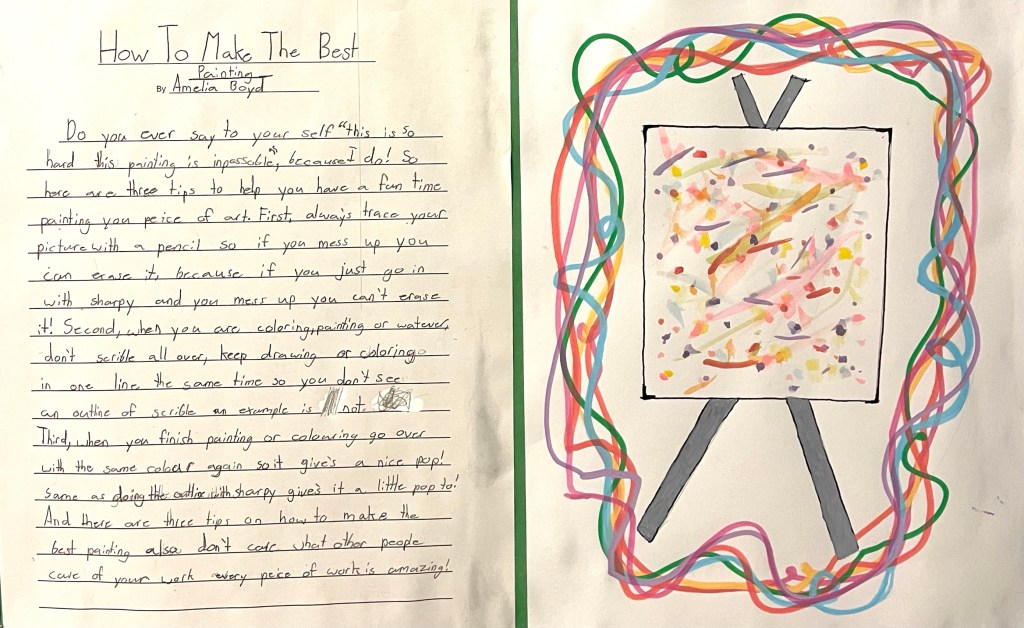 How To Make The Best
Painting
By Amelia Boyd
Do you ever say to your self "this is so
hard this painting is inpossable", because I do! So
here are three tips to help you have a fun time
painting you peice of art. First, always trace your
picture with a pencil so if you mess up you
can erase it, because if you just go in
with sharpy and you mess up you can't erase
it! Second, when you are coloring, painting or watever,
don't scrible all over, keep drawing or coloring
in one line the same time so you don't see
an outline of scrible an example is not
Third, when you finish painting or colouring go over
with the same colour again so it give's a nice pop!
same as doing the outline with sharpy give's it a little pop to!
And there are three tips on how to make the
best painting also don't care what other people
care of your work every peice of work is amazing!